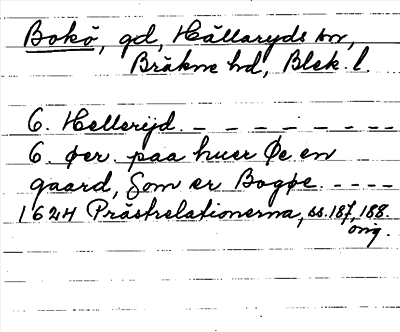 Bokö, gd, Hällaryds sn,
Bräkne hd, Blek. l.
6. Hellerijd. – – – – – – –
6. Øer. paa huer Øe en
gaard, Som er Bogøe. – – – –
1624 Prästrelationerna, ss. 187, 188.
orig.